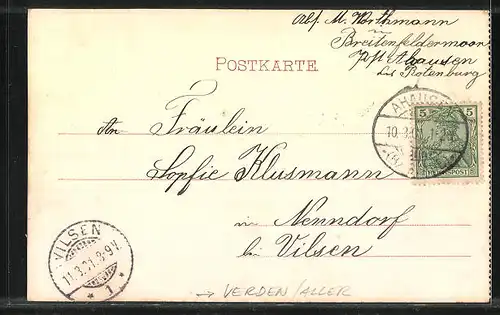 Abs. M. Worthmann
in
Breitenfeldermoor
Post Ahausen
bei Rotenburg
POSTKARTE.
An Fräulein
Sophie Klusmann
in Nenndorf
bei Vilsen
AHAUSEN
10.3.01
5 5
REICHSPOST
VILSEN
11.3.01.8-9V.
* 1 *
→ VERDEN/ALLER